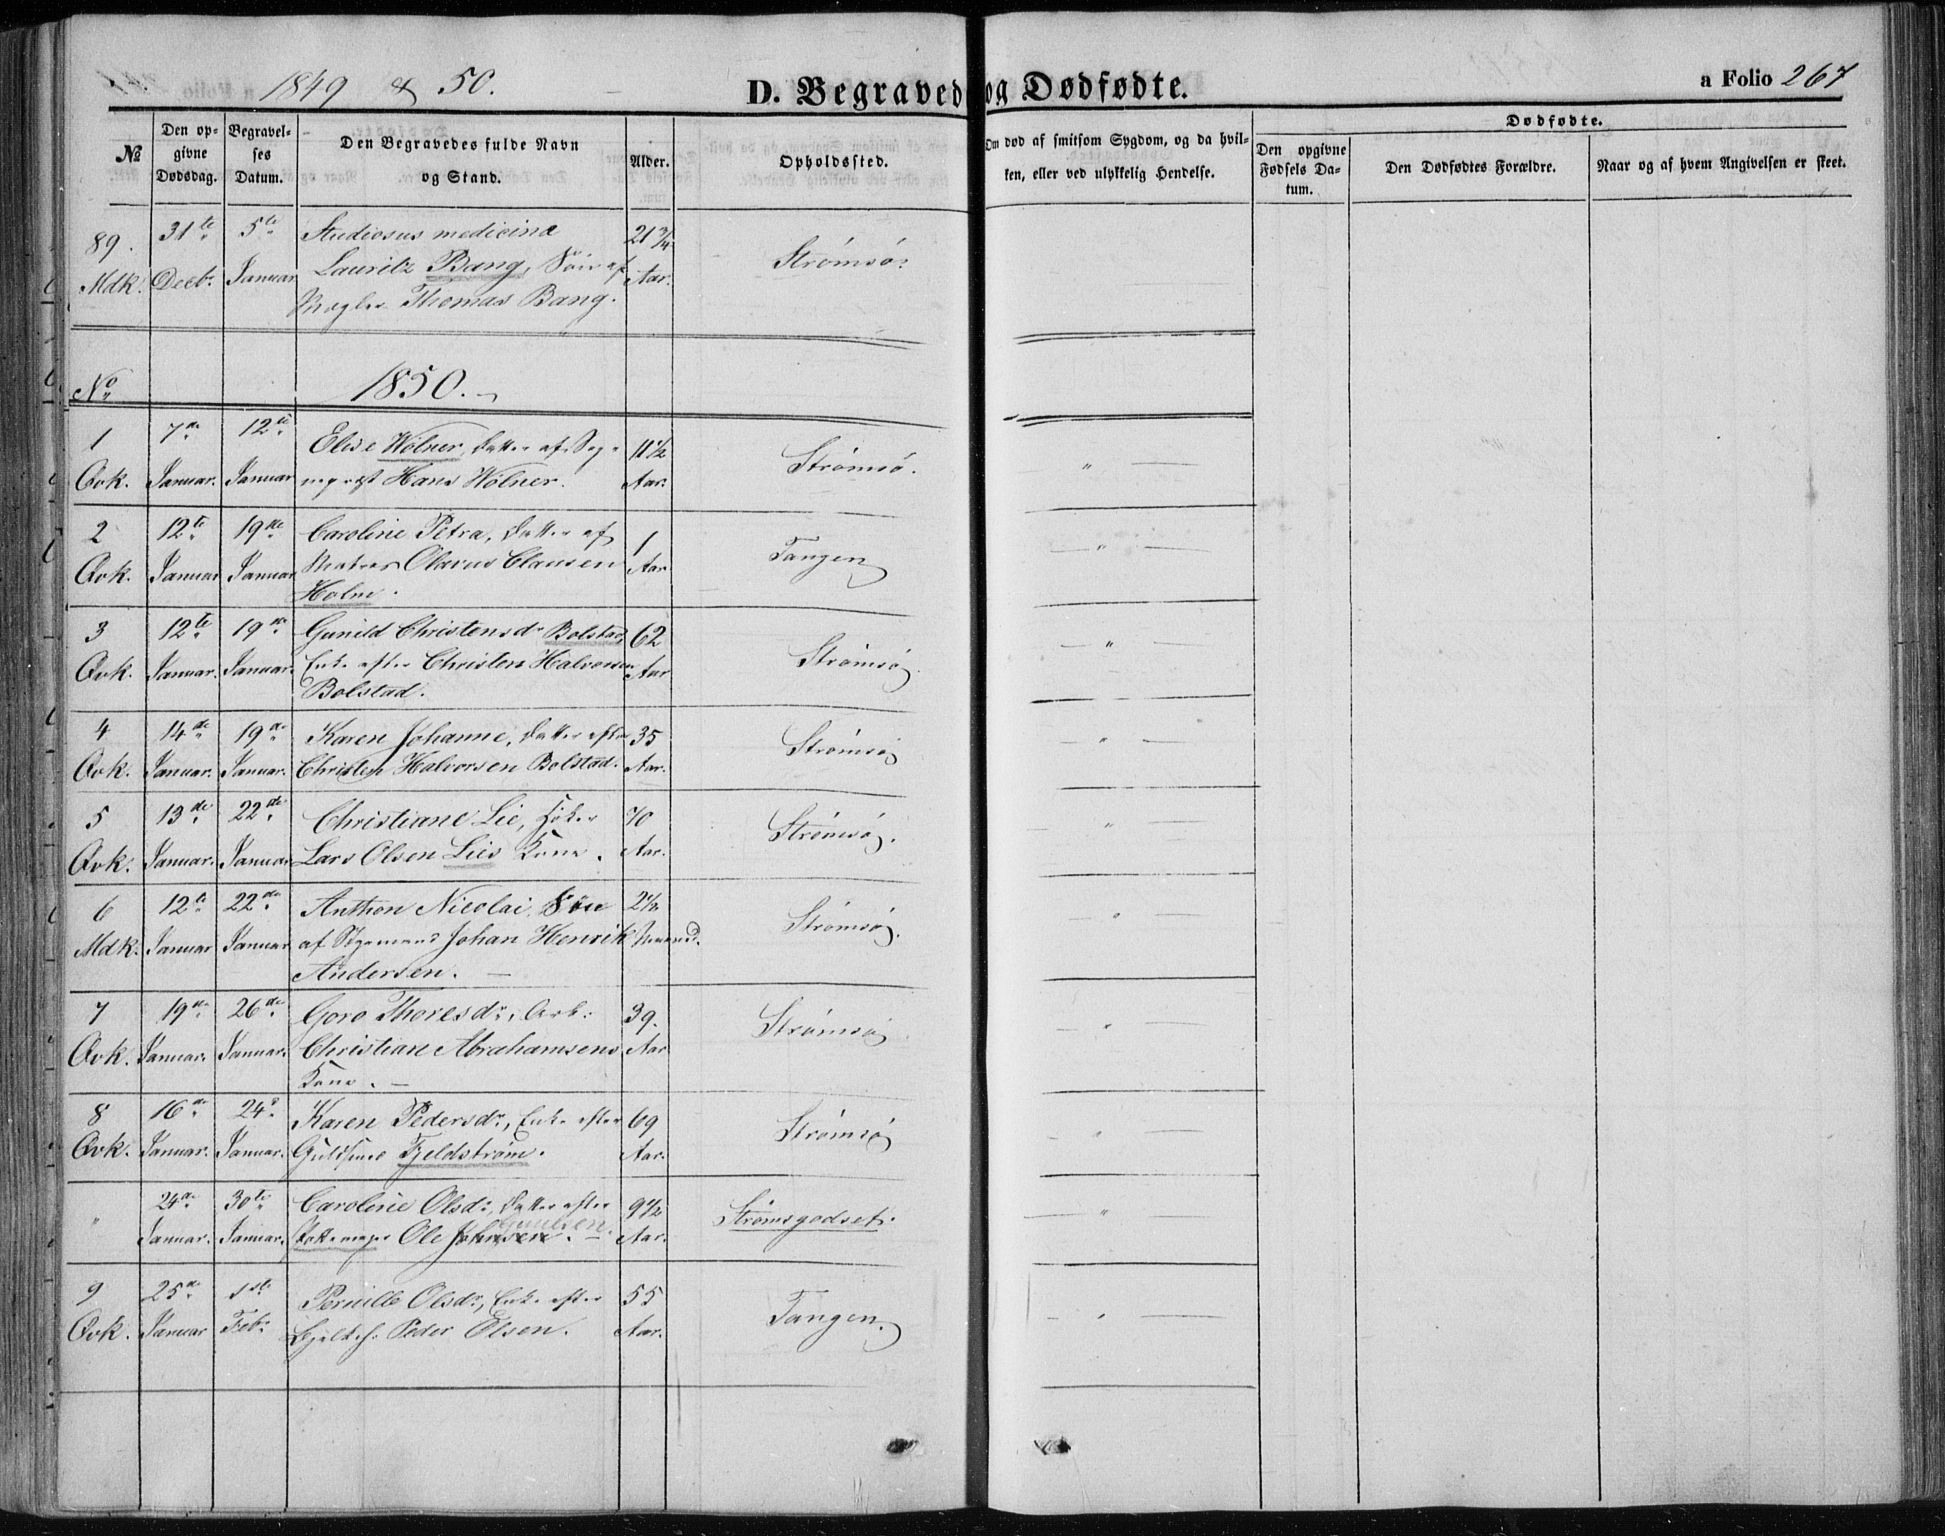 1849 & 50.
D. Begravede og Dødfødte.
a Folio 267
No
Den opgivne Dødsdag.
Begravelses Datum.
Den Begravedes fulde Navn og Stand.
Alder.
Opholdssted.
Om død af smitsom Sygdom, og da hvilken, eller ved ulykkelig Hendelse.
Dødfødte.
Den opgivne Fødsels Datum.
Den Dødfødtes Forældre.
Naar og af hvem Angivelsen er skeet.
89. 31te 5te Studiosus medicinæ 21 3/4 Strømsø.
Mdk. Decbr. Januar Lauritz Bang, Søn af Aar.
Mægler Thomas Bang.
No 1850.
1 7de 12te Elise Wölner, Datter af Sog- 11 1/2 Strømsø. "
Qvk. Januar. Januar nepræst Hans Wölner. Aar.
2 12te 19de Caroline Petra, Datter af 1 Tangen "
Qvk. Januar Januar Matros Olavus Clausen Aar
Holm.
3 12te 19de Gunild Christensdr Bolstad, 62 Strømsø. "
Qvk. Januar. Januar. Enke efter Christen Halvorsen Aar
Bolstad.
4 14de 19de Karen Johanne, Datter efter 35 Strømsø "
Qvk. Januar. Januar. Christen Halvorsen Bolstad. Aar.
5 13de 22de Christiane Lie, Høker 70 Strømsø. "
Qvk. Januar. Januar Lars Olsen Lies Kone. Aar.
6 12te 22de Anthon Nicolai, Søn 2 1/2 Strømsø. "
Mdk. Januar Januar af Sømand Johan Henrik Maaned.
Andersen.
7 19de 26de Goro Thoresdr, Arb: 39. Strømsø "
Qvk. Januar. Januar. Christian Abrahamsens Aar
Kone.
8 16de 24de Karen Pedersdr, Enke efter 69 Strømsø "
Qvk. Januar. Januar. Guldsmed Fjeldstrøm. Aar.
" 24de 30te Caroline Olsdr, Datter efter 9 1/2 Strømsgodset. "
Januar. Januar. Ole Johnsen. Aar.
9 25de 1ste Pernille Olsdr, Enke efter 55 Tangen. "
Qvk. Januar Febr Peder Olsen. Aar.